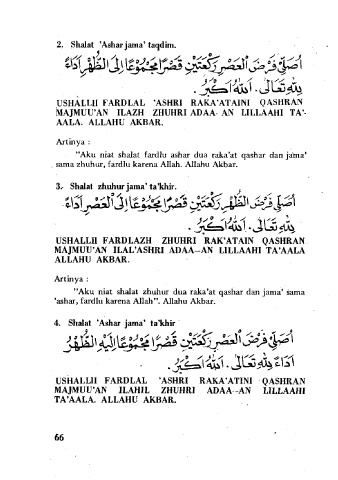 2. Shalat 'Ashar jama' taqdim.
اُصَلِّى فَرْضَ الْعَصْرِ رَكْعَتَيْنِ قَصْرًا مَجْمُوْعًا اِلَى الظُّهْرِ اَدَاءً
لِلّٰهِ تَعَالَى. اَللهُ اَكْبَرُ.
USHALLII FARDLAL 'ASHRI RAKA'ATAINI QASHRAN
MAJMUU'AN ILAZH ZHUHRI ADAA- AN LILLAAHI TA'-
AALA. ALLAHU AKBAR.
Artinya :
"Aku niat shalat fardlu ashar dua raka'at qashar dan jama'
sama zhuhur, fardlu karena Allah. Allahu Akbar.
3. Shalat zhuhur jama' ta'khir.
اُصَلِّى فَرْضَ الظُّهْرِ رَكْعَتَيْنِ قَصْرًا مَجْمُوْعًا اِلَى الْعَصْرِ اَدَاءً
لِلّٰهِ تَعَالَى. اَللهُ اَكْبَرُ.
USHALLII FARDLAZH ZHUHRI RAK'ATAIN QASHRAN
MAJMUU'AN ILAL'ASHRI ADAA--AN LILLAAHI TA'AALA
ALLAHU AKBAR.
Artinya :
"Aku niat shalat zhuhur dua raka'at qashar dan jama' sama
'ashar, fardlu karena Allah". Allahu Akbar.
4. Shalat 'Ashar jama' ta'khir
اُصَلِّى فَرْضَ الْعَصْرِ رَكْعَتَيْنِ قَصْرًا مَجْمُوْعًا اِلَيْهِ الظُّهْرُ
اَدَاءً لِلّٰهِ تَعَالَى. اَللهُ اَكْبَرُ.
USHALLII FARDLAL 'ASHRI RAKA'ATINI QASHRAN
MAJMUU'AN ILAHIL ZHUHRI ADAA--AN LILLAAHI
TA'AALA. ALLAHU AKBAR.
66